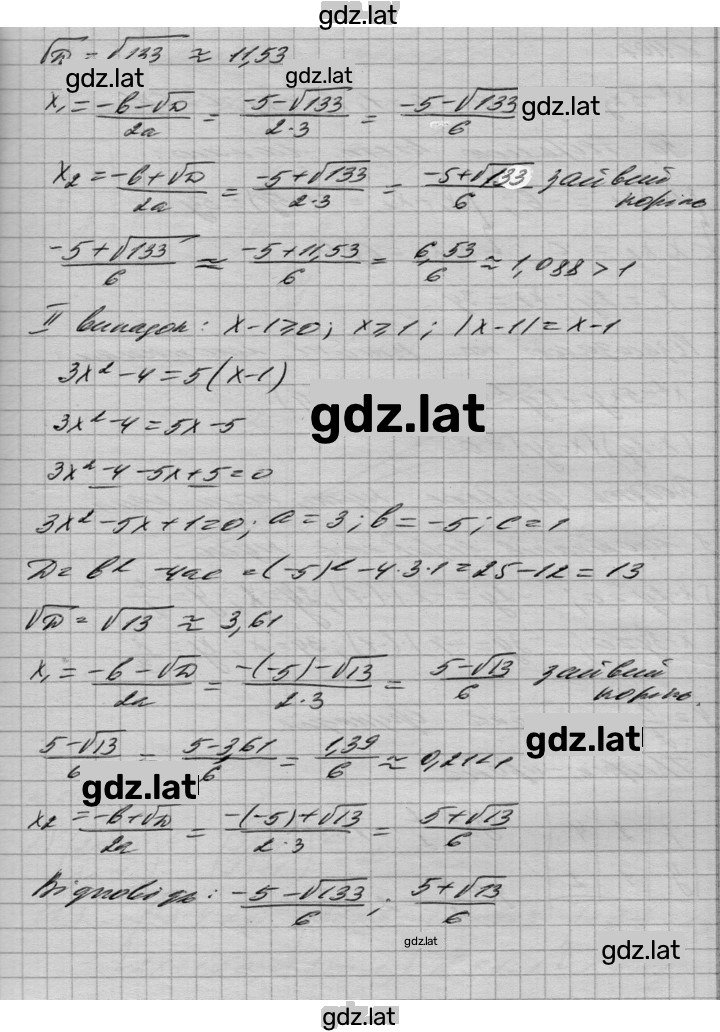 gdz.lat
√D = √133 ≈ 11,53
gdz.lat gdz.lat
x₁ = (-b-√D)/2a = (-5-√133)/(2·3) = (-5-√133)/6 gdz.lat
x₂ = (-b+√D)/2a = (-5+√133)/(2·3) = (-5+√133)/6 зайвий
корінь
(-5+√133)/6 ≈ (-5+11,53)/6 = 6,53/6 ≈ 1,088 > 1
II випадок: x-1≥0; x≥1; |x-1| = x-1
3x² - 4 = 5(x-1)
gdz.lat
3x² - 4 = 5x - 5
3x² - 4 - 5x + 5 = 0
3x² - 5x + 1 = 0; a = 3; b = -5; c = 1
D = b² - 4ac = (-5)² - 4·3·1 = 25 - 12 = 13
√D = √13 ≈ 3,61
x₁ = (-b-√D)/2a = (-(-5)-√13)/(2·3) = (5-√13)/6 зайвий
корінь.
gdz.lat
(5-√13)/6 = (5-3,61)/6 = 1,39/6 ≈ 0,21 < 1
gdz.lat
x₂ = (-b+√D)/2a = (-(-5)+√13)/(2·3) = (5+√13)/6
Відповідь: (-5-√133)/6; (5+√13)/6
gdz.lat
gdz.lat
gdz.lat